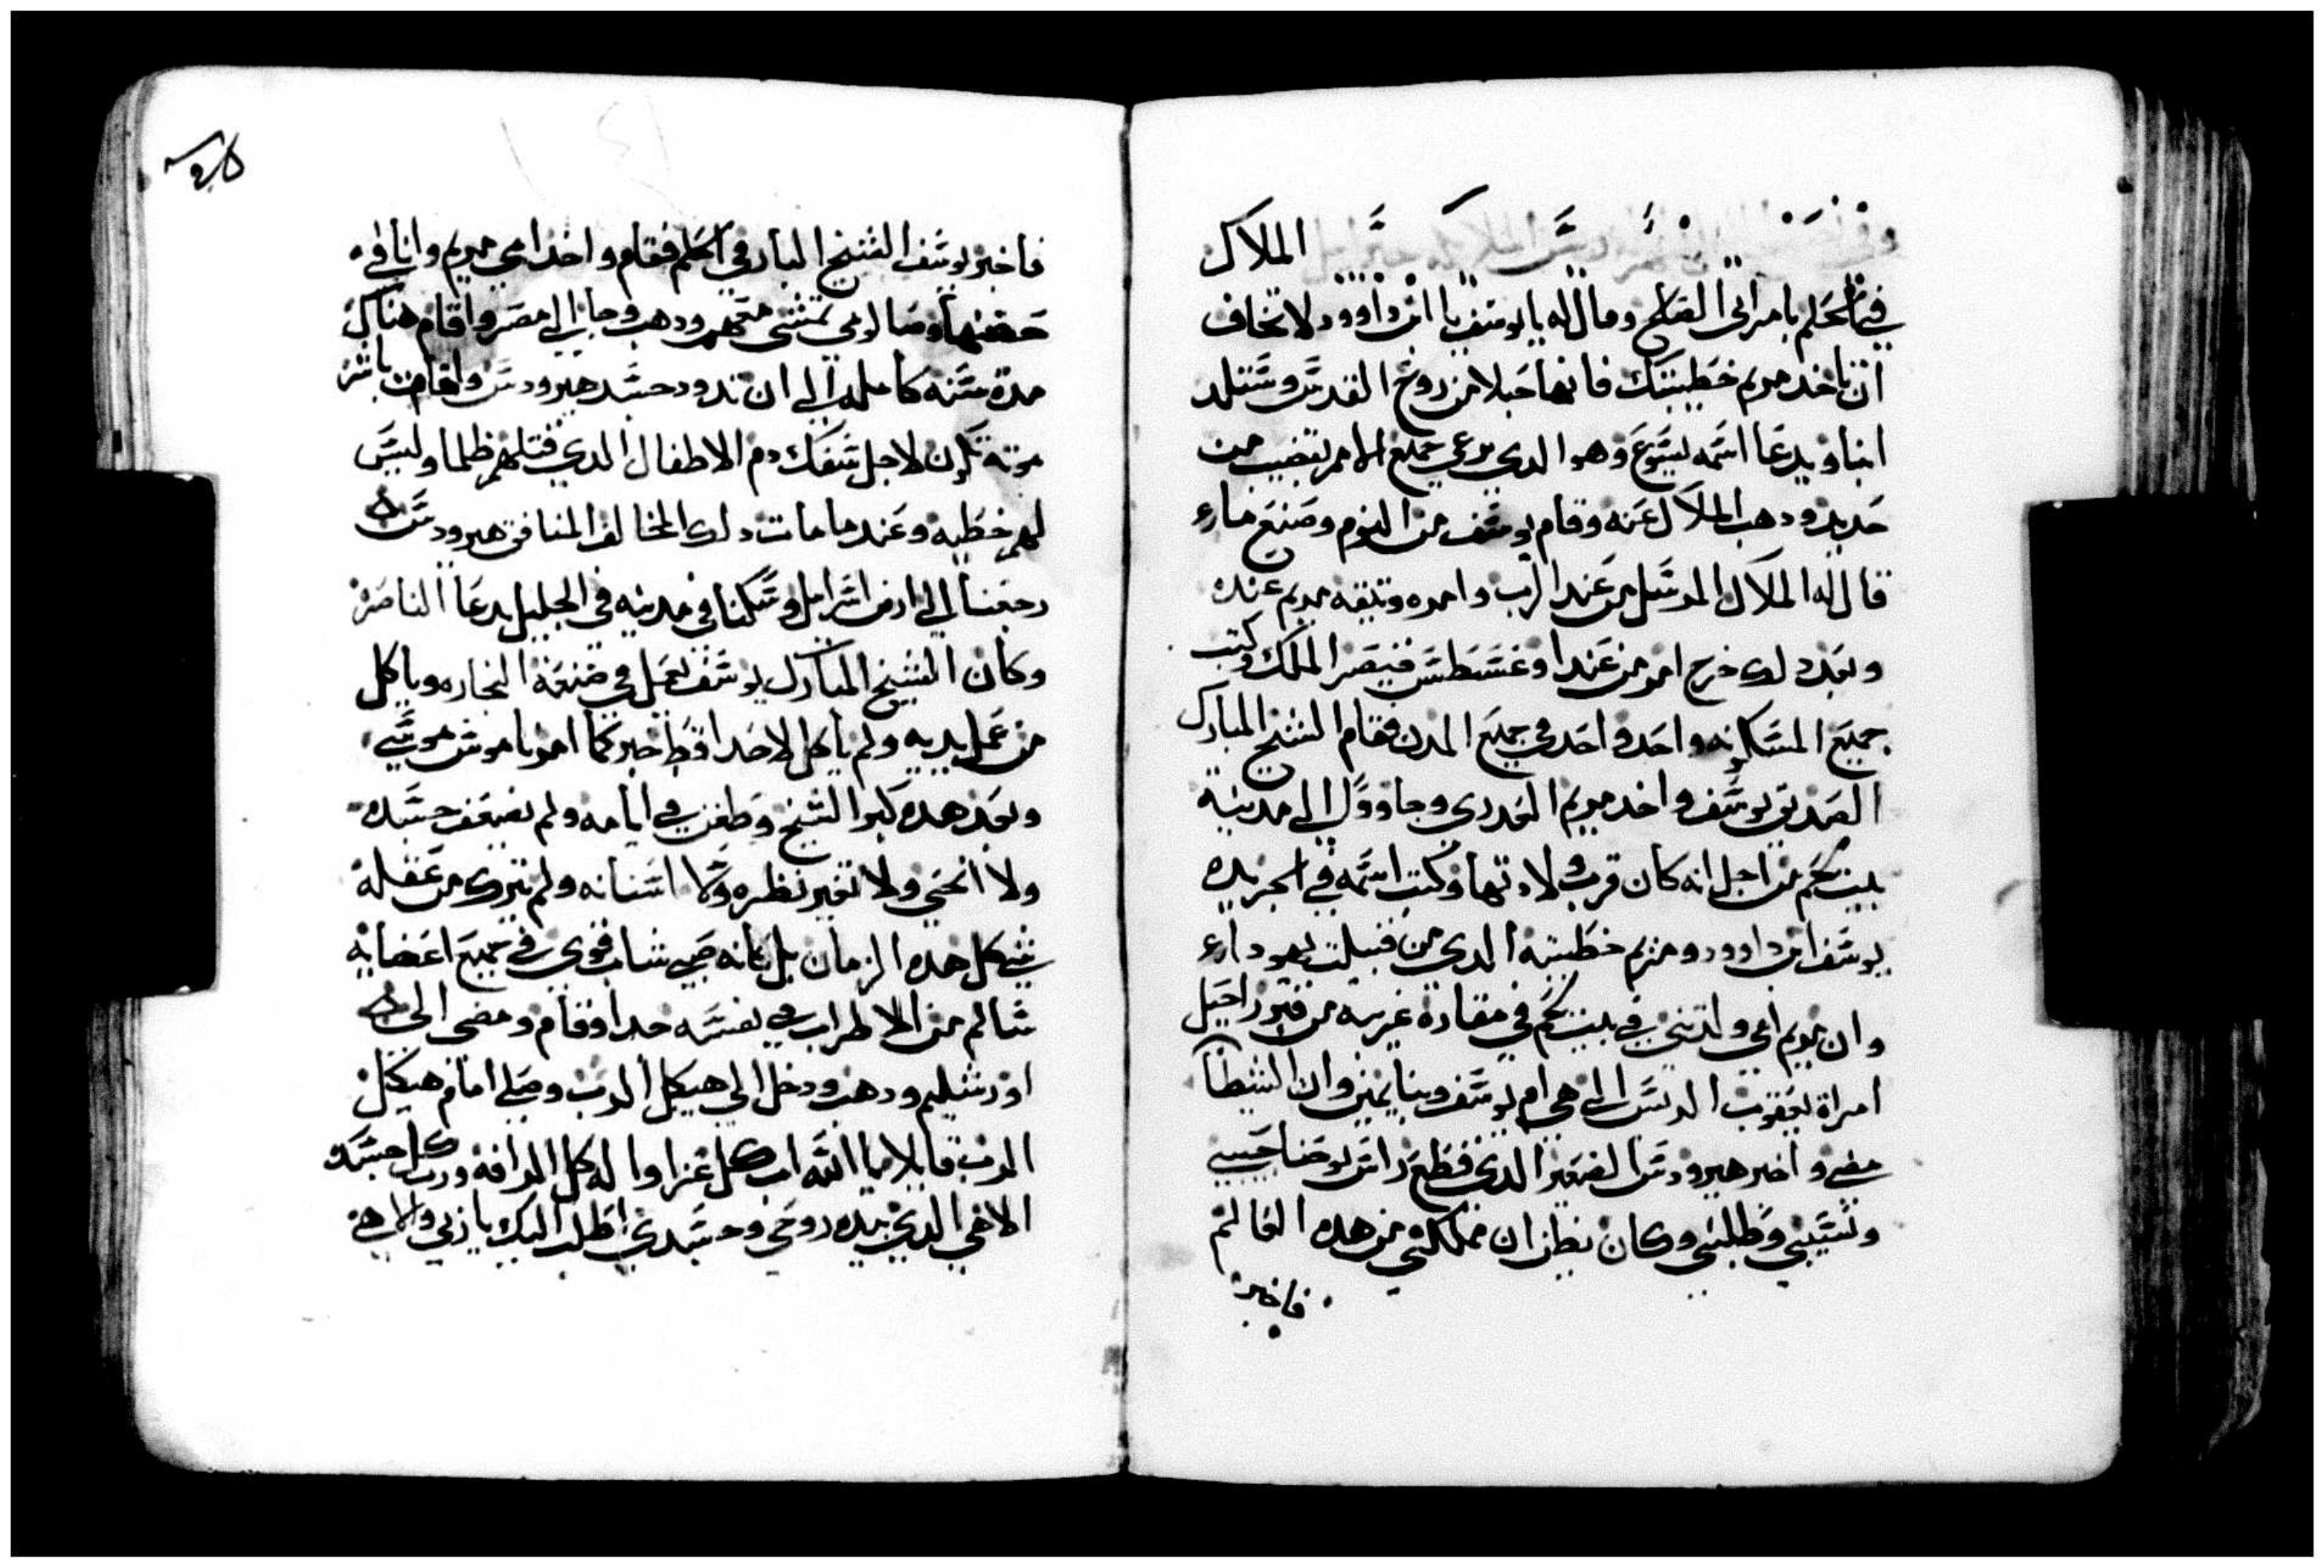 الملاك
في الحلم بامر ابي الصالح وقال له يا يوسف يا ابن داوود لا تخاف
ان تاخد مريم خطيبتك فانها حبلا من روح القدس وستلد
ابنا ويدعا اسمه يسوع وهو الدي يرعي جميع الامم بقضيب من
حديد ودهب الملاك عنه وقام يوسف من النوم وصنع مارء
قال له الملاك المرسل من عند الرب وامره وتبقه مريم عنده
وبعد دلك خرج امر من عند اوغسطس قيصر الملك وكتب
جميع المسكونه واحد واحد في جميع المدن فقام الشيخ المبارك
الصديق يوسف واخد مريم العدري وجاو الي مدينة
بيت لحم من اجل انه كان قرب ولادتها وكتب اسمه في الجريده
يوسف ابن داوود ومريم خطيبته الدي من قبيلت يهودارء
وان مريم امي ولدتني في بيت لحم في مغارة غريبه من قبر راحيل
امراة يعقوب الديس التي هي ام يوسف وبنايمين وان الشيطان
مضي واخبر هيرودس الصغير الدي قطع راس يوحنا حبيبي
ونسيبي وطلبني وكان يظن ان مملكتي من هده العالم
فاخبر
فاخبر يوسف الشيخ البار في الحلم فقام واخد امي مريم وانا في
حضنها وصالومي تمشي معهم ودهب وجا الي مصر واقام هناك
مدة سنه كامله الي ان تدود جسد هيرودس واقام باشر
موته لاجل سفك دم الاطفال الدي قتلهم ظلما وليس
لهم خطيه وعند ما مات دلك المخالف المنافق هيرودس
رجعنا الي ارض اسراييل وسكنا في مدينه في الجليل يدعا الناصره
وكان الشيخ المبارك يوسف يعمل في صنعة النجاره وياكل
من عمل يديه ولم ياكل لاحدا قط خبز كما امر ناموس موسي
وبعد هده كبر الشيخ وطعن في ايامه ولم يضعف جسده
ولا انحني ولا تغير نظره ولا اسنانه ولم يترك من عقله
شي كل هده الزمان بل كانه صبي شاب قوي في جميع اعضايه
سالم من الاطراب في نفسه جدا وقام ومضي الي
اورشليم ودهب ودخل الي هيكل الرب وصلي امام هيكل
الرب قايلا يا الله اب كل عزا واله كل الرافه ورب كل جسد
الاهي الدي بيده روحي وجسدي اطلب اليك يا ربي والاهي